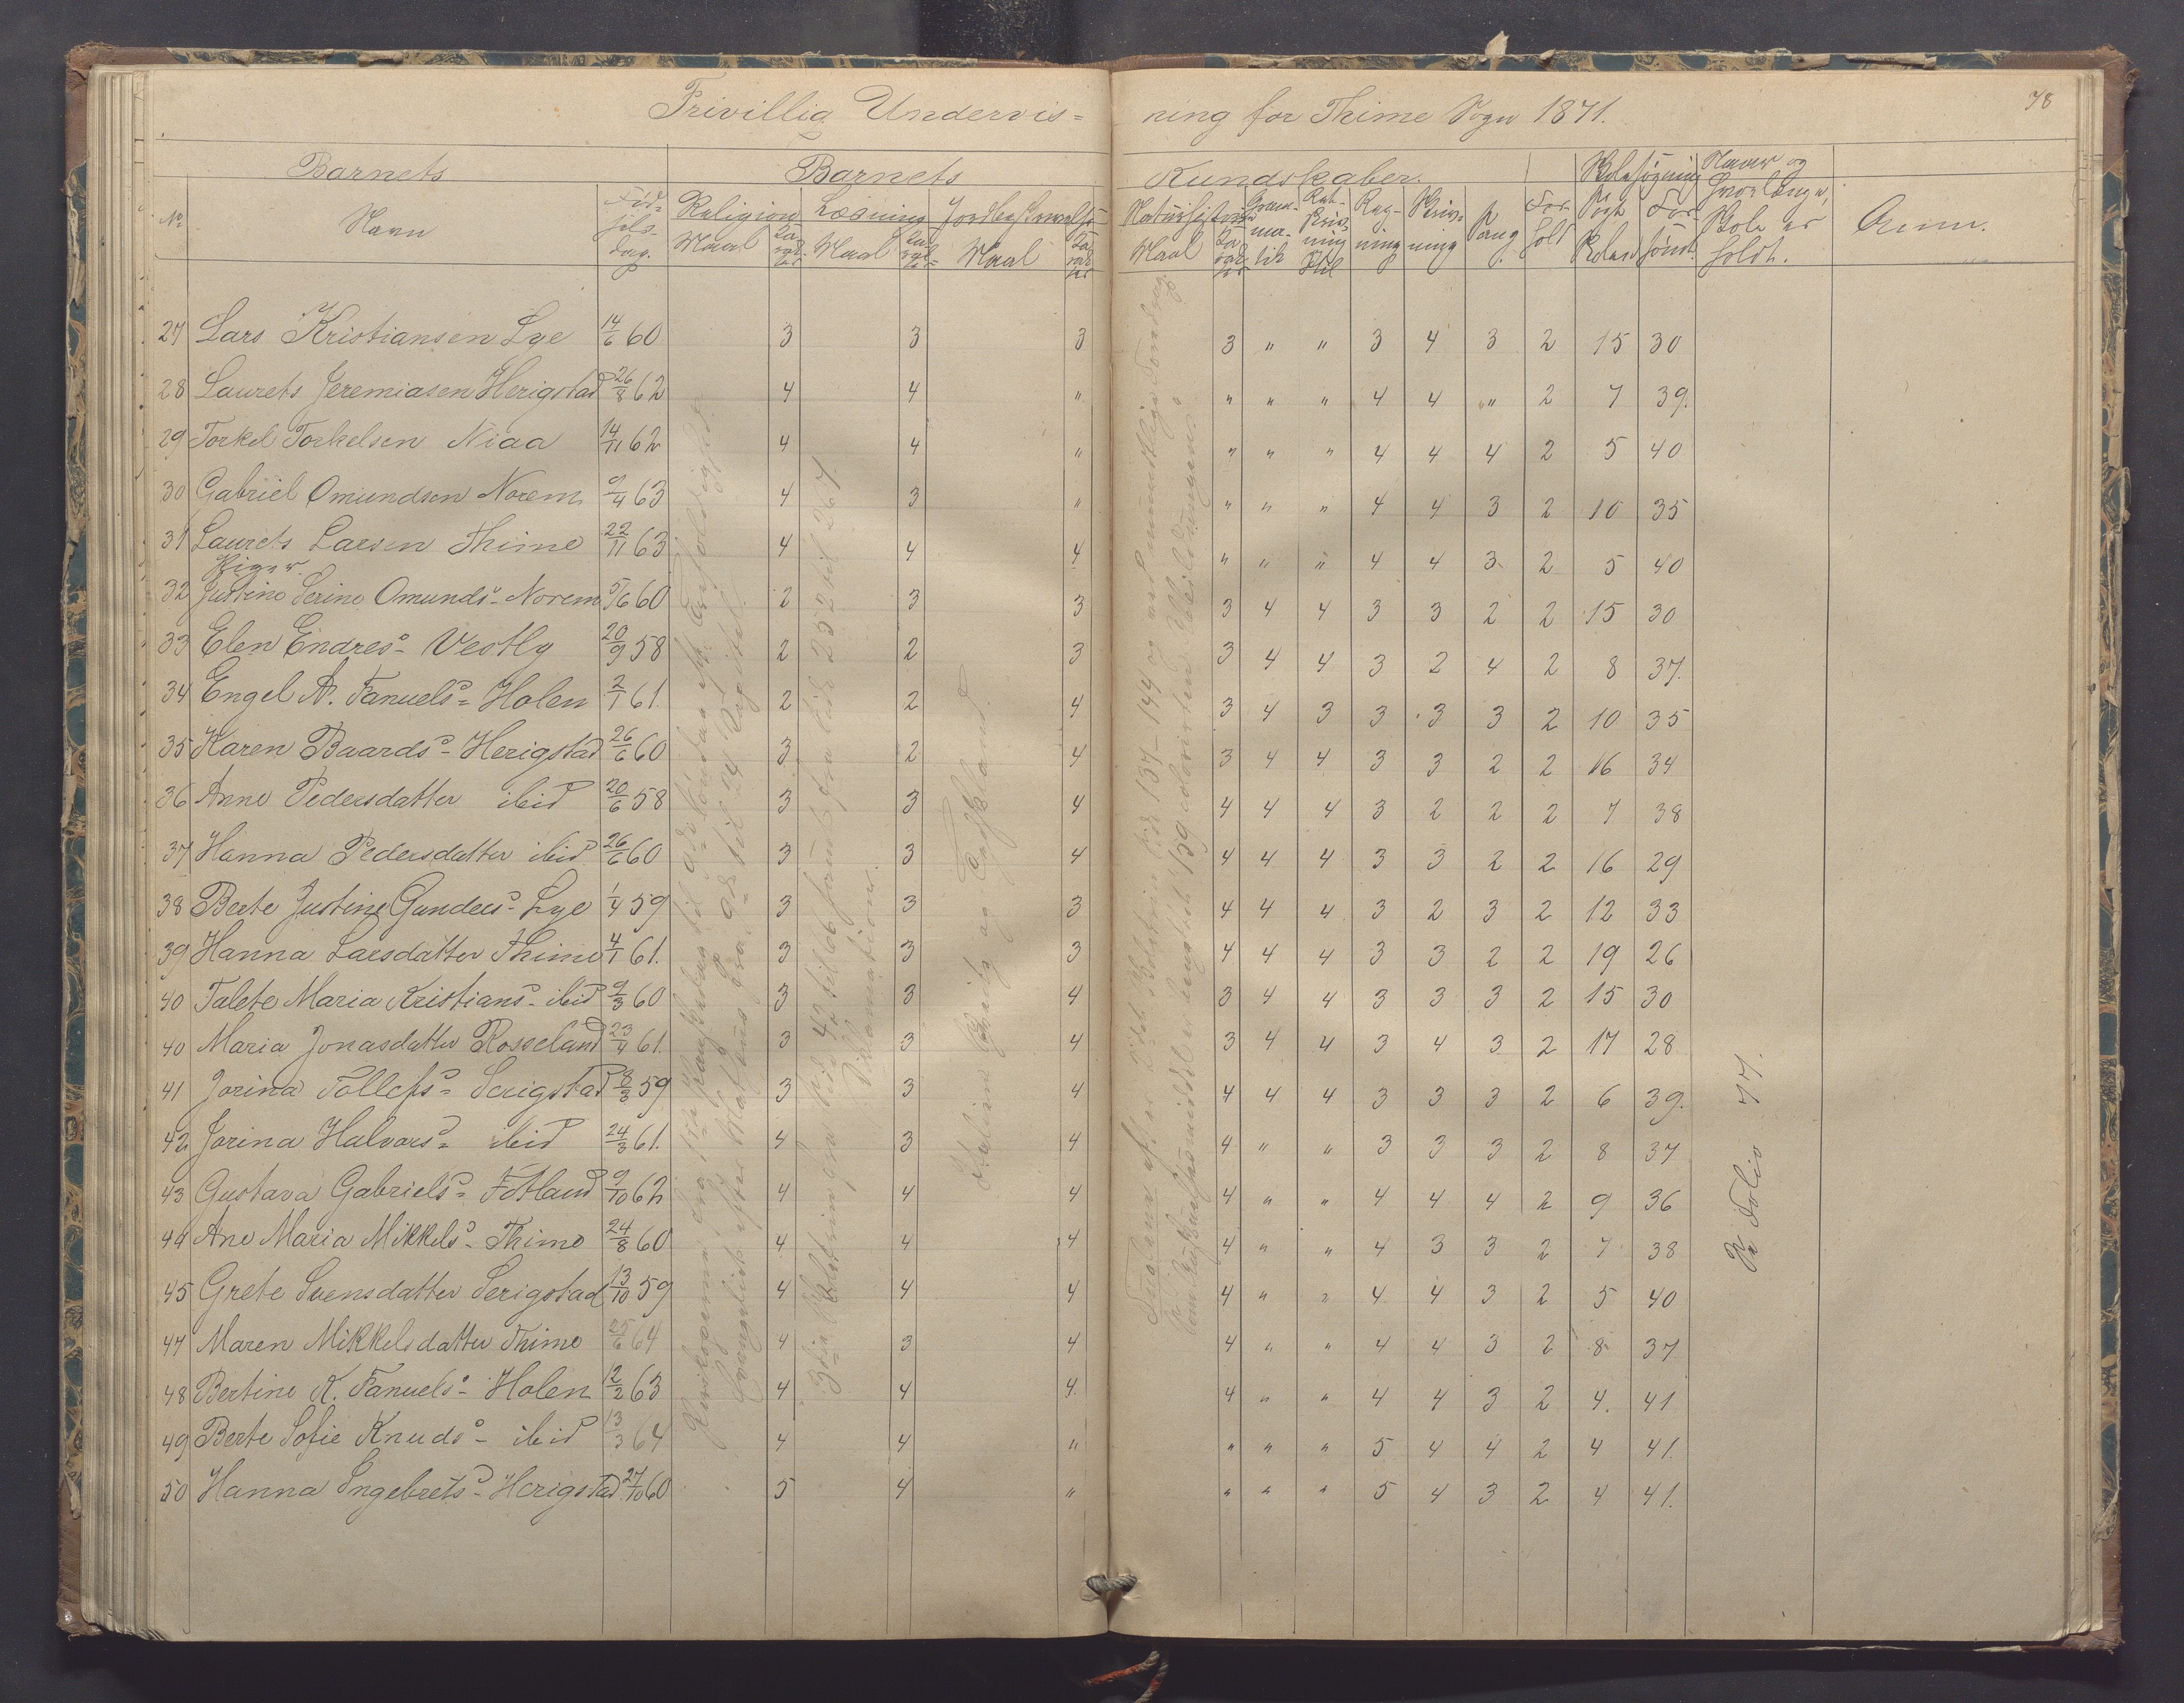 78
Frivillig Undervis= ning for Thime Sogn 1871.
Barnets Barnets Kundskaber. Skolesøgning Naar og
No Navn Fød= sels= dag. Religion Læsning Jordbeskrivelse Naturhistorie Gram= ma= tik Ret= skriv= ning Stil Reg= ning Skriv= ning Sang For= hold Søgt Skolen For= sømt Skole er holdt. Anm.
Maal Ka= rak= ter Maal Maal Maal
27 Lars Kristiansen Lye 14/6 60 3 3 3 3 " " 3 4 3 2 15 30
28 Laurets Jeremiasen Herigstad 26/8 62 4 4 " " " " 4 4 " 2 7 39.
29 Torkel Torkelsen Niaa 14/11 62 4 4 " " " " 4 4 4 2 5 40
30 Gabriel Omundsen Norem 9/4 63 4 3 " " " " 4 4 3 2 10 35
31 Laurets Larsen Thime 22/11 63 4 4 4 " " " 4 4 3 2 5 40
Piger.
32 Justine Serine Omundsd- Norem 5/6 60 2 3 3 3 4 4 3 3 2 2 15 30
33 Elen Endresd- Vestly 20/9 58 2 2 3 3 4 4 3 2 4 2 8 37.
34 Engel A. Fanuelsd= Holen 2/1 61. 2 2 4 3 4 3 3 3 3 2 10 35
35 Karen Baardsd- Herigstad 26/6 60 3 2 4 3 4 4 3 3 2 2 16 34
36 Anne Pedersdatter ibid 20/6 58 3 3 4 4 4 4 3 2 2 2 7 38
37 Hanna Pedersdatter ibid 26/6 60 3 3 4 4 4 4 3 3 2 2 16 29
38 Berte Justine Gundersd- Lye 1/4 59 3 3 3 4 4 4 3 2 3 2 12 33
39 Hanna Larsdatter Thime 4/1 61. 3 3 3 4 4 4 3 3 2 2 19 26
40 Talete Maria Kristiansd- ibid 9/3 60 3 3 4 3 4 4 3 3 3 2 15 30
40 Maria Jonasdatter Rosseland 23/4 61. 3 3 4 3 4 4 3 4 3 2 17 28
41 Jorina Tollefsd= Serigstad 8/3 59 3 3 4 4 4 4 3 3 3 2 6 39.
42 Jorina Halvorsd= ibid 24/3 61. 4 3 4 4 " " 3 3 3 2 8 37
43 Gustava Gabrielsd= Fotland 9/10 62 4 4 4 4 " " 4 4 4 2 9 36
44 Ane Maria Mikkelsd- Thime 24/8 60 4 4 4 4 " " 4 3 3 2 7 38
45 Grete Svensdatter Serigstad 13/10 59 4 4 4 4 " " 4 4 3 2 5 40
47 Maren Mikkelsdatter Thime 25/6 64 4 3 4 4 " " 4 4 3 2 8 37
48 Bertine K. Fanuelsd- Holen 12/2 63 4 4 4 4 " " 4 4 3 2 4. 41
49 Berte Sofie Knudsd- ibid 13/3 64 4 4 " " " " 5 4 4 2 4 41.
50 Hanna Ingebretsd- Herigstad 27/10 60 5 4 " " " " 5 4 3 2 4 41.
Italien og Tydskland.
Folio 77.